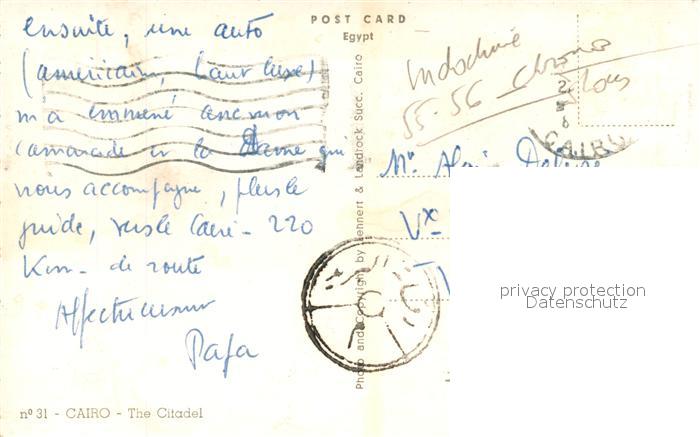 POST CARD
Egypt
ensuite, une auto
(américaine, haut luxe)
m'a emmené avec mon
camarade et la Dame qui
nous accompagne, plus le
guide, vers le Caire - 220
Km - de route
Affectueusement
Papa
nº 31 - CAIRO - The Citadel
Photo and Copyright by Lehnert & Landrock Succ. Cairo
Indochine
55-56
CAIRO
Mr Alain
Vx
privacy protection
Datenschutz